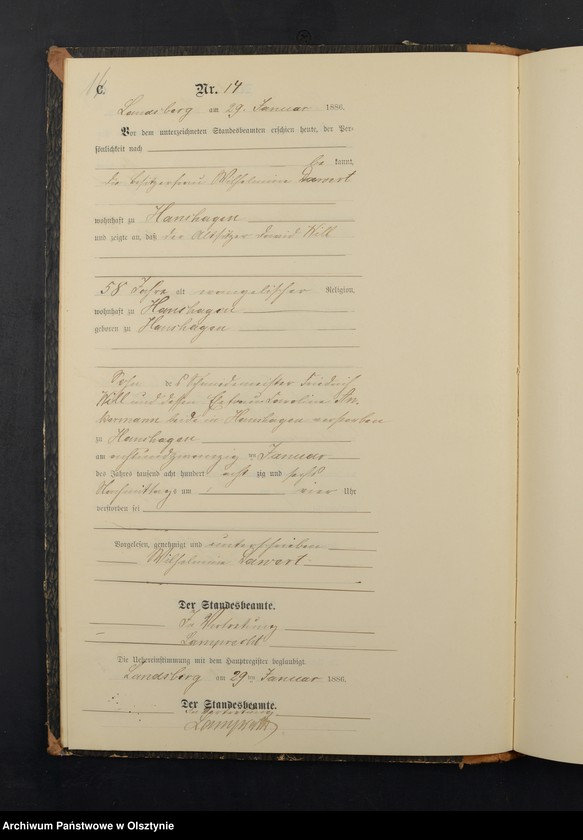 C.
Nr. 14
Landsberg am 29. Januar 1886.
Vor dem unterzeichneten Standesbeamten erschien heute, der Per-
sönlichkeit nach
be kannt,
die Besitzerfrau Wilhelmine Lawert
wohnhaft zu Hanshagen
und zeigte an, daß der Altsitzer David Will
58 Jahre alt evangelischer Religion,
wohnhaft zu Hanshagen
geboren zu Hanshagen
Sohn des Schmiedemeister Friedrich
Will und dessen Ehefrau Caroline
beide in Hanshagen verstorben
zu Hanshagen
am achtundzwanzig ten Januar
des Jahres tausend acht hundert acht zig und sechs
Nachmittags um vier Uhr
verstorben sei
Vorgelesen, genehmigt und unterschrieben
Wilhelmine Lawert
Der Standesbeamte.
In Vertretung
Lamprecht
Die Uebereinstimmung mit dem Hauptregister beglaubigt.
Landsberg am 29ten Januar 1886.
Der Standesbeamte.
In Vertretung
Lamprecht
Archiwum Państwowe w Olsztynie